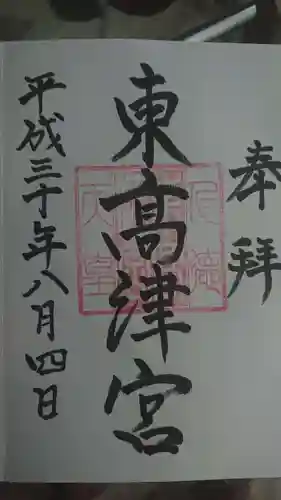 奉拝
東高津宮
平成三十年八月四日